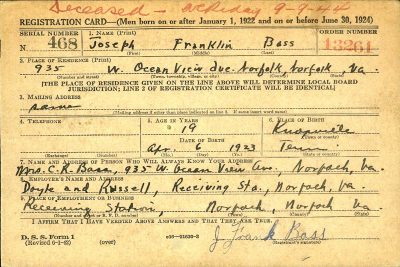 Deceased - 9-9-44
REGISTRATION CARD—(Men born on or after January 1, 1922 and on or before June 30, 1924)
SERIAL NUMBER 1. NAME (Print) ORDER NUMBER
N 468 Joseph Franklin Bass 13261
(First) (Middle) (Last)
2. PLACE OF RESIDENCE (Print)
935 W. Ocean View Ave. Norfolk, Norfolk Va.
(Number and street) (Town, township, village, or city) (County) (State)
[THE PLACE OF RESIDENCE GIVEN ON THE LINE ABOVE WILL DETERMINE LOCAL BOARD
JURISDICTION; LINE 2 OF REGISTRATION CERTIFICATE WILL BE IDENTICAL]
3. MAILING ADDRESS
Same
(Mailing address if other than place indicated on line 2. If same insert word same)
4. TELEPHONE 5. AGE IN YEARS 6. PLACE OF BIRTH
19 Knoxville
DATE OF BIRTH (Town or county)
Apr. 6 1923 Tenn
(Exchange) (Number) (Mo.) (Day) (Yr.) (State or country)
7. NAME AND ADDRESS OF PERSON WHO WILL ALWAYS KNOW YOUR ADDRESS
Mrs. C.R. Bass, 935 W. Ocean View Ave., Norfolk, Va.
8. EMPLOYER'S NAME AND ADDRESS
Doyle and Russell, Receiving Sta., Norfolk, Va.
9. PLACE OF EMPLOYMENT OR BUSINESS
Receiving Station, Norfolk, Norfolk Va.
(Number and street or R. F. D. number) (Town) (County) (State)
I AFFIRM THAT I HAVE VERIFIED ABOVE ANSWERS AND THAT THEY ARE TRUE.
D. S. S. Form 1
(Revised 6-9-42) (over) J Frank Bass